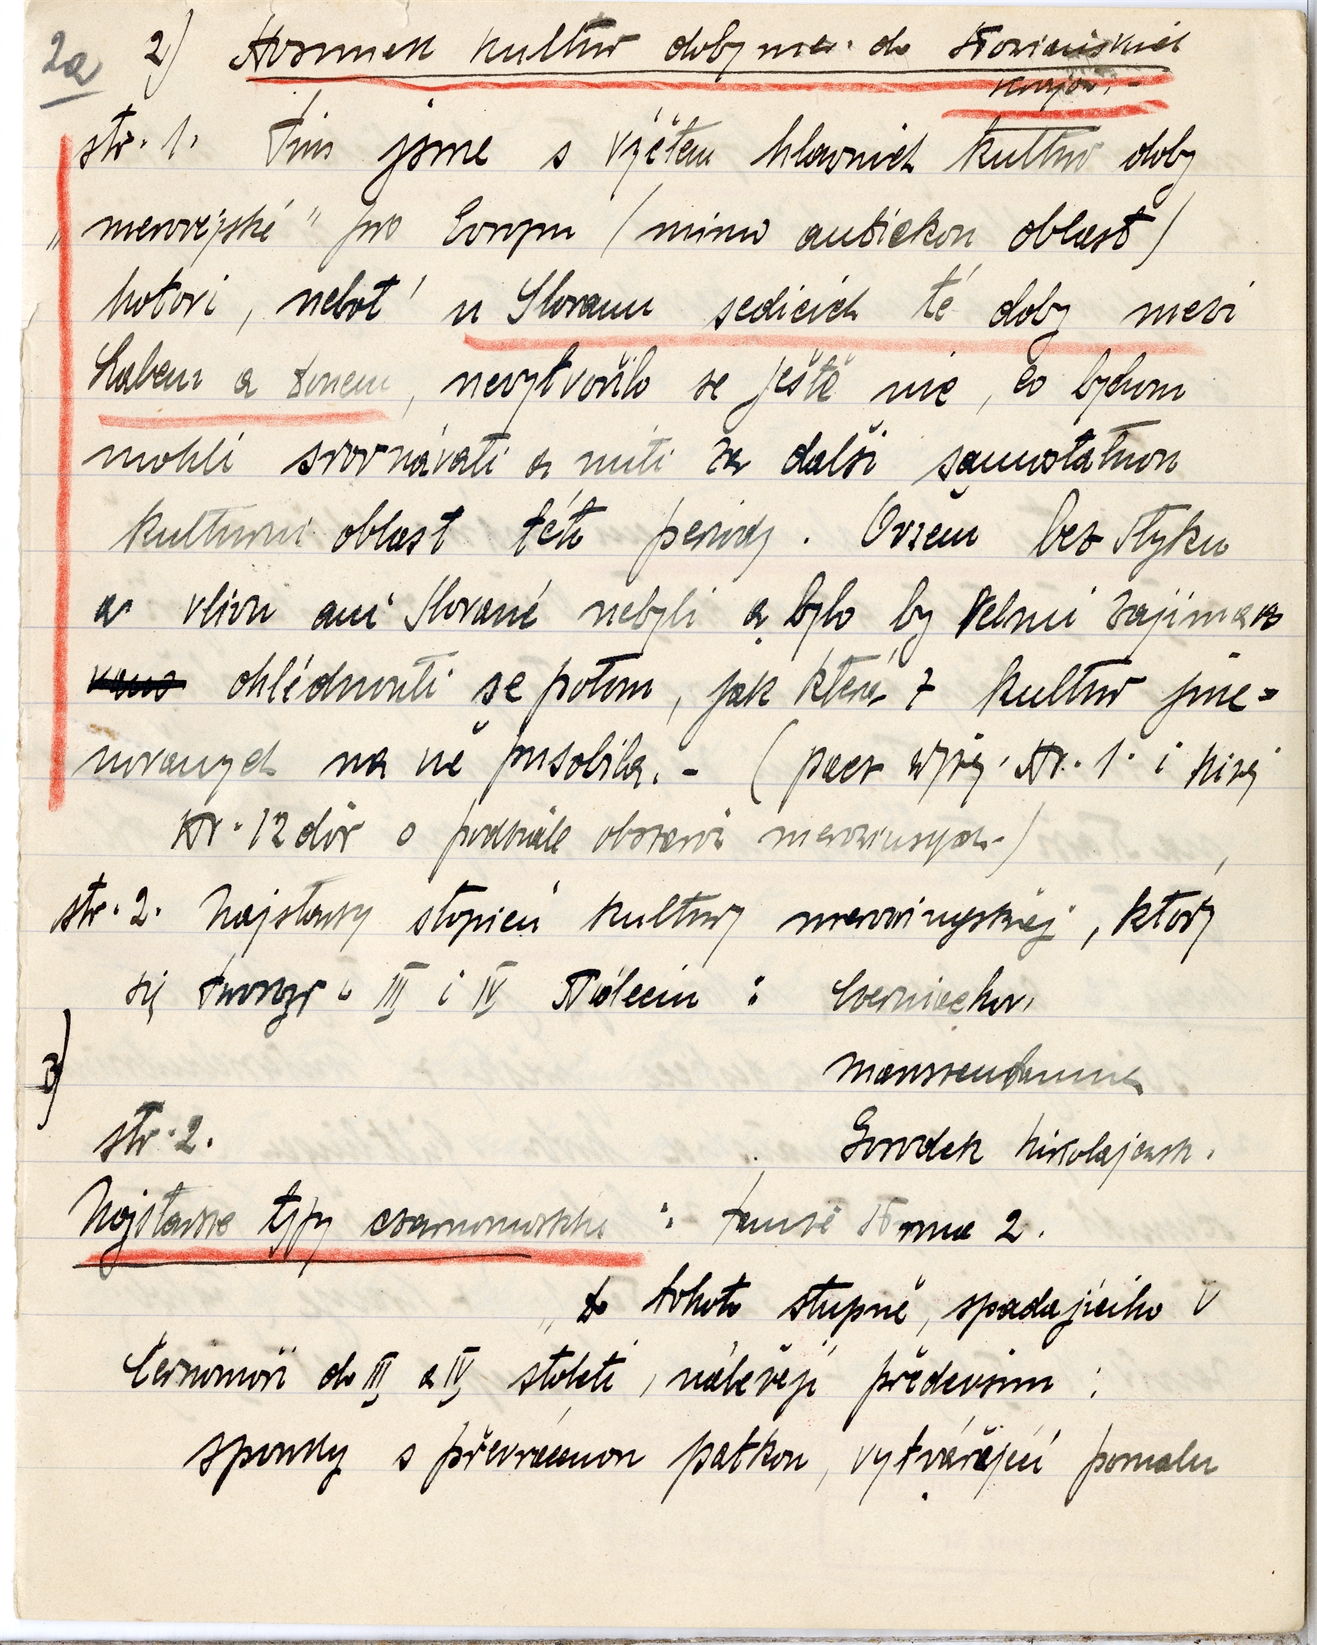 2a
2) Stosunek kultur doby mer. do słowiańskich
krajów. -
str. 1. Tím jsme s výčtem hlavních kultur doby
„merovejské" pro Evropu (mimo antickou oblast)
hotovi, neboť u Slovanu sedících té doby mezi
Labem a Donem, nevytvořilo se ještě nic, co bychom
mohli srovnávati a míti za další samostatnou
kulturní oblast této periody. Ovšem bez styku
a vlivu ani Slované nebyli a bylo by velmi zajímavo
ohlédnouti se potom, jak která z kultur jme=
novaných na ně působila. - (patrz wyżej str. 1. i niżej
str. 12 o podziale obszarów merowińsych)
str. 2. Najstarszy stopień kultury merowingskiej, który
się tworzy w III i IV stóleciu : Czerniechov,
Maršrendamm
3)
str. 2. Gorodek Nikolajewsk.
Najstarsze typy czarnomorskie : tamże strona 2.
„Do tohoto stupně, spadajícího v
Černomoří do III a IV století, náležejí především :
spony s převrácenou patkou, vytvářející pomalu